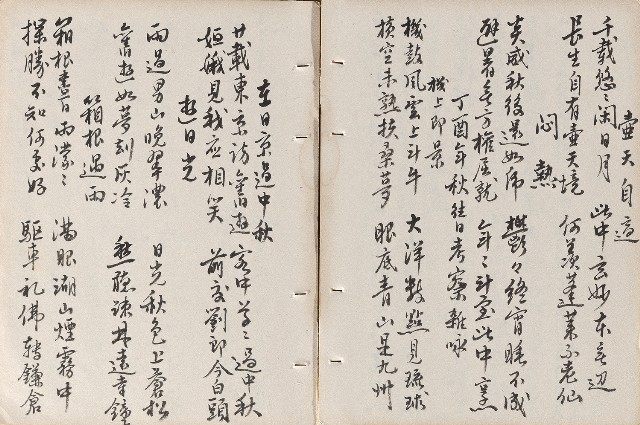 壺天自適
千載悠〻閑日月 此中玄妙本無邊
長生自有壺天境 何羨蓬萊不老仙
悶熱
炎威秋後還如沸 鬱〻終宵睡不成
避暑無方權屈就 年〻斗室此中烹
丁酉年秋往日考察雜詠
機上即景
機鼓風雲上斗牛 大洋數點見琉球
橫空未熟扶桑夢 眼底青山是九州
在日京過中秋
廿載東京訪舊遊 客中草〻過中秋
姮娥見我應相笑 前度劉郎今白頭
遊日光
雨過男山晚翠濃 日光秋色上蒼松
舊遊如夢劫灰冷 聽疎林遠寺鐘
箱根遇雨
箱根日雨濛〻 滿眼湖山煙霧中
探勝不知何處好 驅車礼佛轉鎌倉